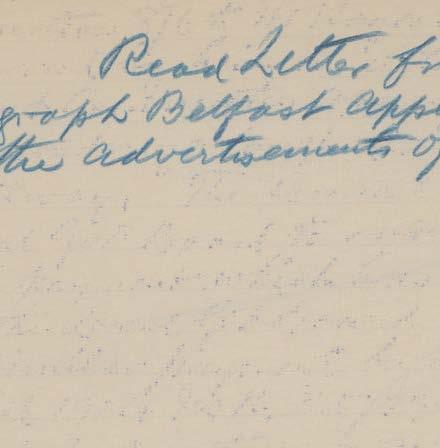 Read Letter fr
graph Belfast App
the advertisements of